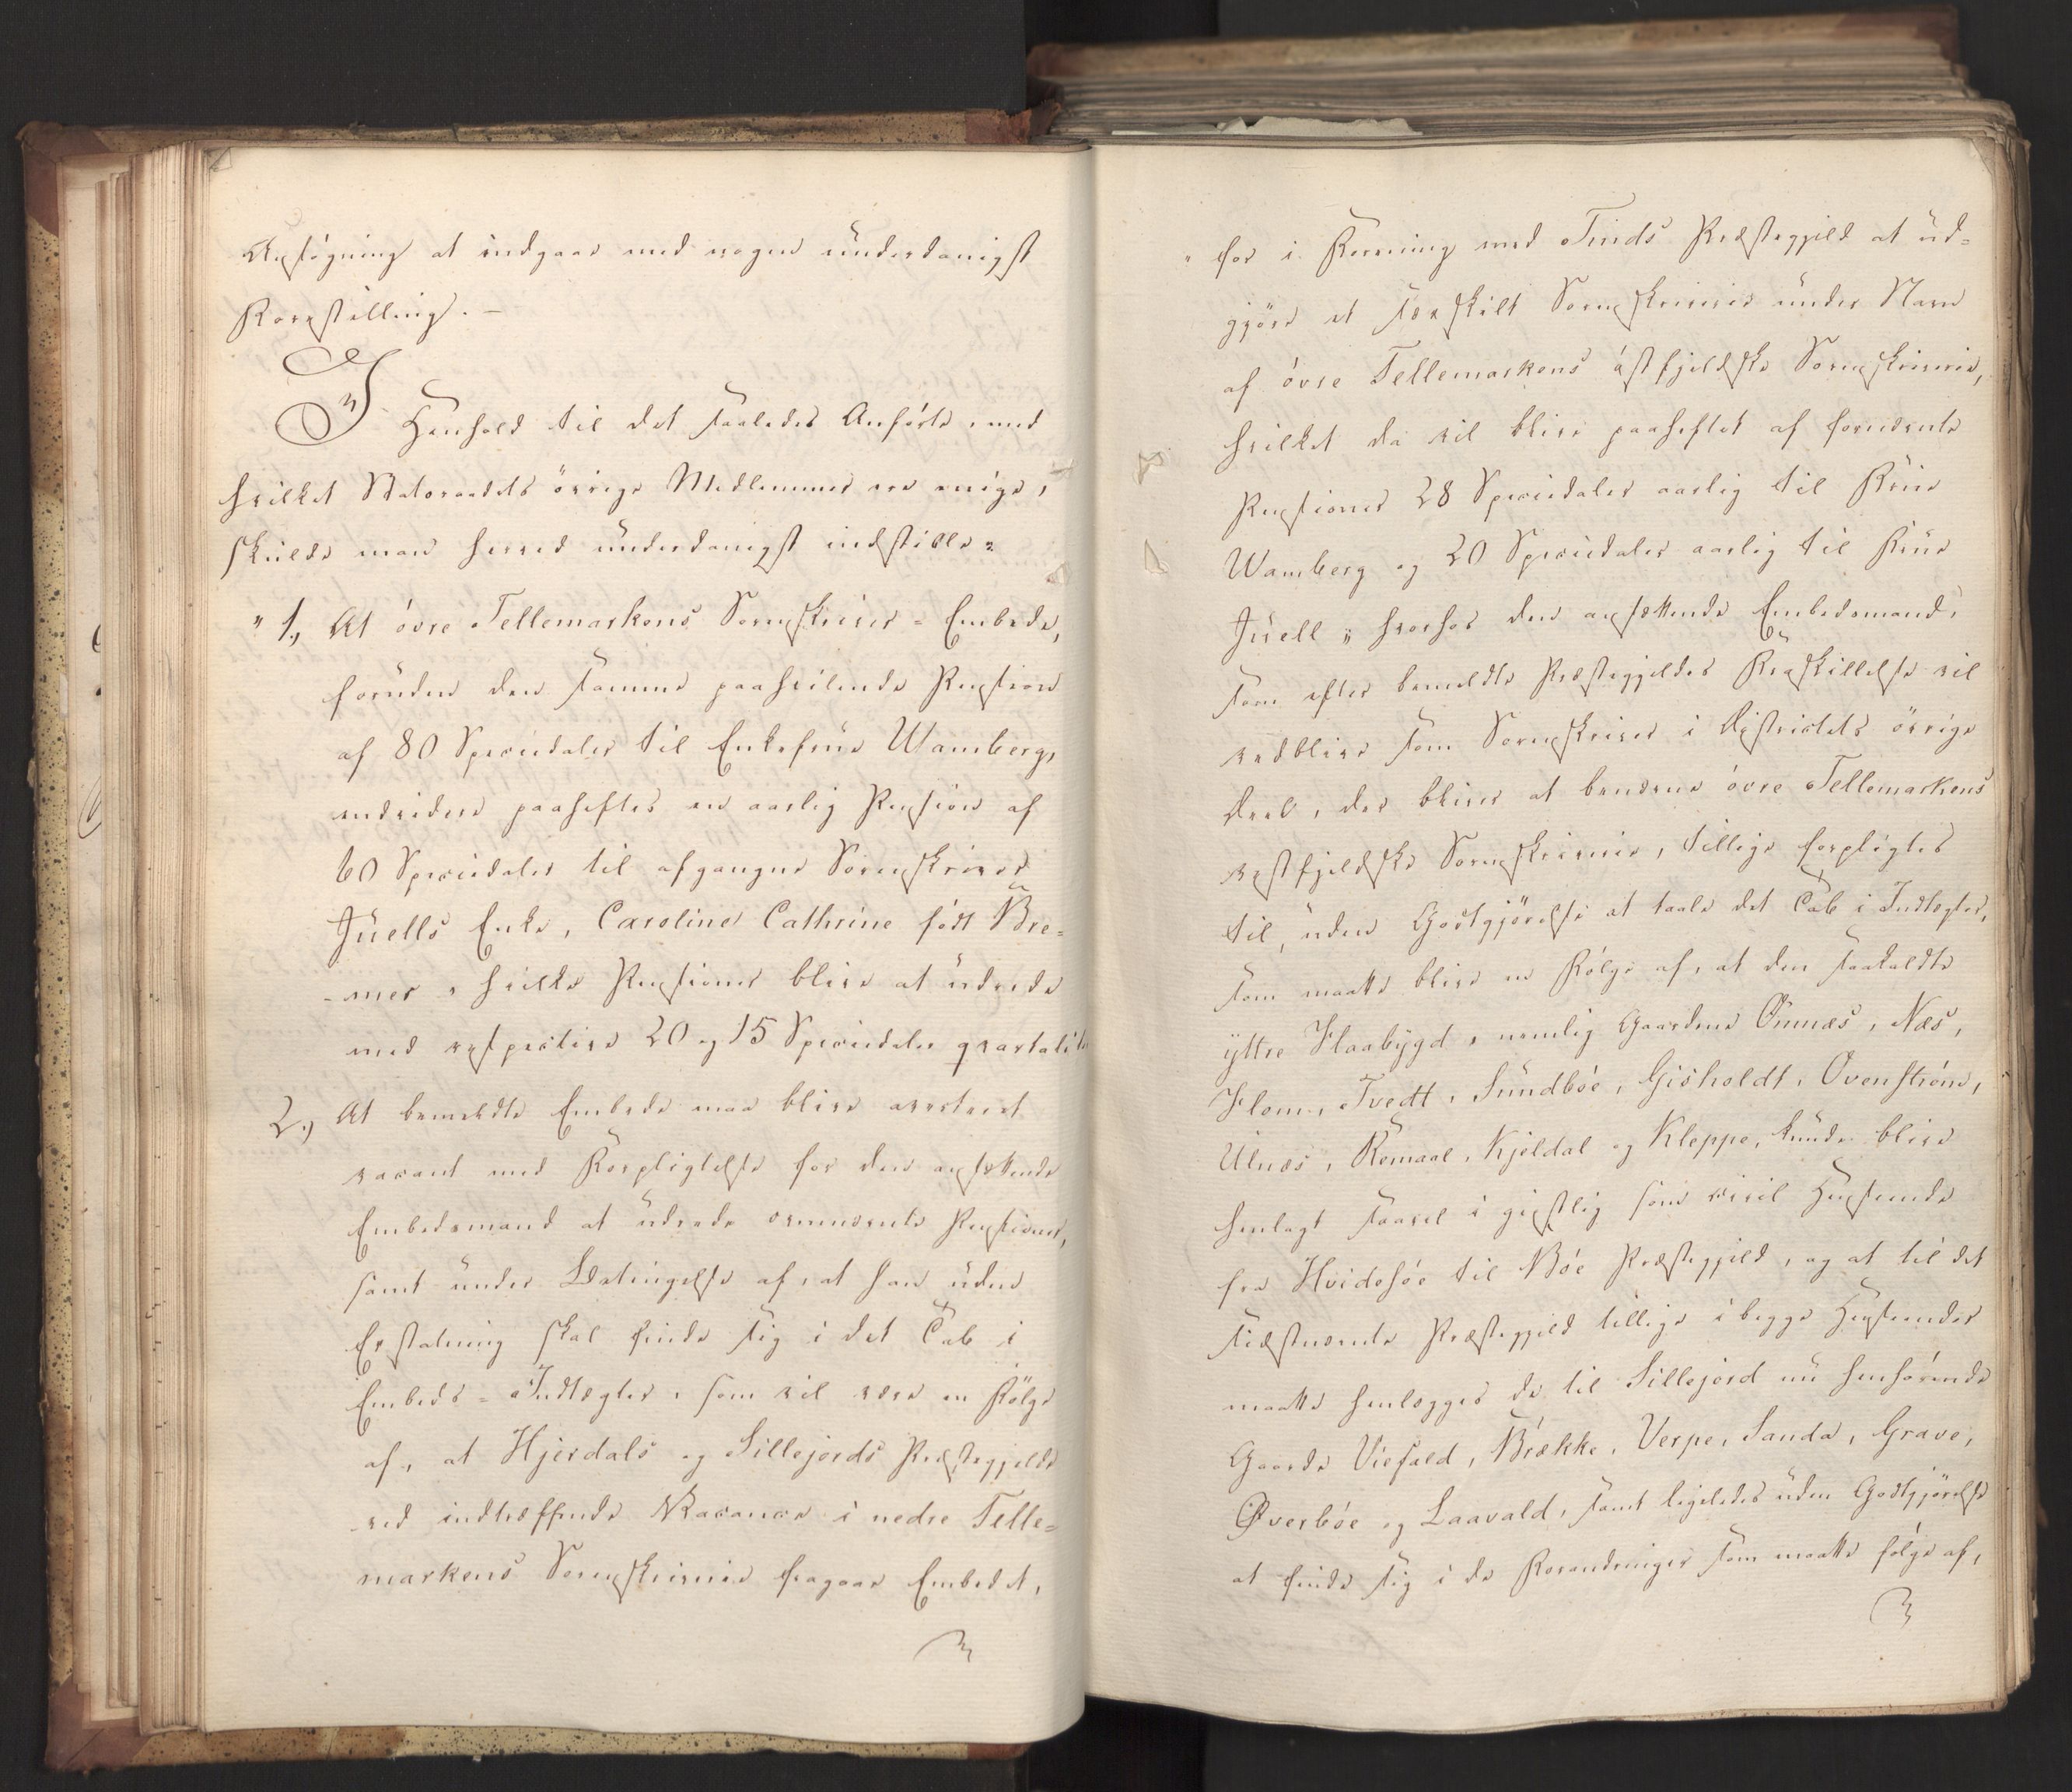 Ansøgning at indgaae med nogen underdanigst
Forestilling. —
I Henhold til det saaledes Anførte, med
hvilket Statsraadets øvrige Medlemmer ere enige,
skulde man herved underdanigst indstille:
"1, At øvre Tellemarkens Sorenskriver-Embede,
foruden den samme paahvilende Pension
af 80 Speciedaler til Enkefrue Wamberg,
endvidere paaheftes en aarlig Pension af
60 Speciedaler til afgangne Sorenskriver
Juells Enke, Caroline Cathrine født Bre-
-mer, hvilke Pensioner blive at udrede
med respective 20 og 15 Speciedaler qvartaliter
2, At bemeldte Embede maa blive averteret
vacant med Forpligtelse for den ansættende
Embedsmand at udrede ovennævnte Pensioner,
samt under Betingelse af, at han uden
Erstatning skal finde sig i det Tab i
Embeds-Indtægter, som vil være en Følge
af, at Hjerdals og Sillejords Præstegjelde
ved indtræffende Vacance i nedre Telle-
markens Sorenskriverie fragaae Embedet,
" for i Forening med Tinds Præstegjeld at ud-
gjøre et særskilt Sorenskriverie under Navn
af øvre Tellemarkens østfjeldske Sorenskriverie,
hvilket da vil blive paaheftet af fornævnte
Pensioner 28 Speciedaler aarlig til Frue
Wamberg og 20 Speciedaler aarlig til Frue
Juell; hvorhos den ansættende Embedsmand,
som efter bemeldte Præstegjeldes Fraskillelse vil
vedblive som Sorenskriver i Districtets øvrige
Deel, der bliver at benævne øvre Tellemarkens
vestfjeldske Sorenskriverie, tillige forpligtes
til, uden Godtgjørelse at taale det Tab i Indtægter,
som maatte blive en Følge af, at den saakaldte
yttre Flaabygd, nemlig Gaardene Omnæs, Næs,
Flom, Tvedt, Sundbøe, Gisholdt, Ovenstrøm,
Ulnæs, Romaal, Kjeldal og Kleppe, kunde blive
henlagt saavel i geistlig som civil Henseende
fra Hvidesøe til Bøe Præstegjeld, og at til det
sidstnævnte Præstegjeld tillige i begge Henseender
maatte henlægges de til Sillejord nu henhørende
Gaarde Viefald, Brække, Verpe, Sanda, Grave,
Øverbøe og Laavald, samt ligeledes uden Godtgjørelse
at finde sig i de Forandringer som maatte følge af,